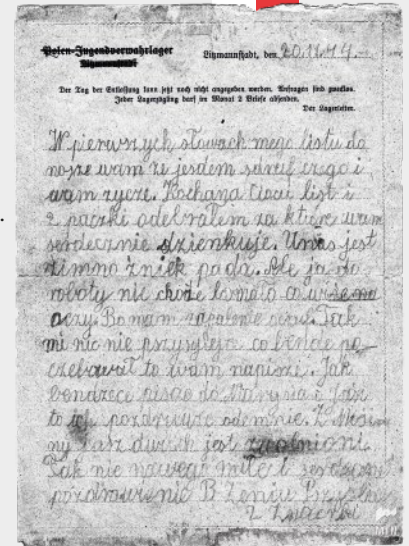 Polen-Jugendverwahrlager
Litzmannstadt
Litzmannstadt, den 20.11.44.
Der Tag der Entlassung kann jetzt noch nicht angegeben werden. Anfragen sind zwecklos.
Jeder Lagerzögling darf im Monat 2 Briefe absenden.
Der Lagerleiter.
W pierwszych słowach mego listu do
nosze wam że jezdem sdruf czego i
wam życze. Kochana Ciociu list i
2 paczki odebrałem za które wam
serdecznie dzienkuje. Unas jest
zimno źniek pada. Ale ja do
roboty nie chodze bo mało co
oczy. Bo mam zapalenie Tak
mi nic nie przysyłejcie co bende po
czebował to wam napisze. Jak
bendzece pisac do Marysia i
to ich pozdrówcie odemnie. Z
ny jest
Tak nie nowego
pozdrowienie B Zeniu
z